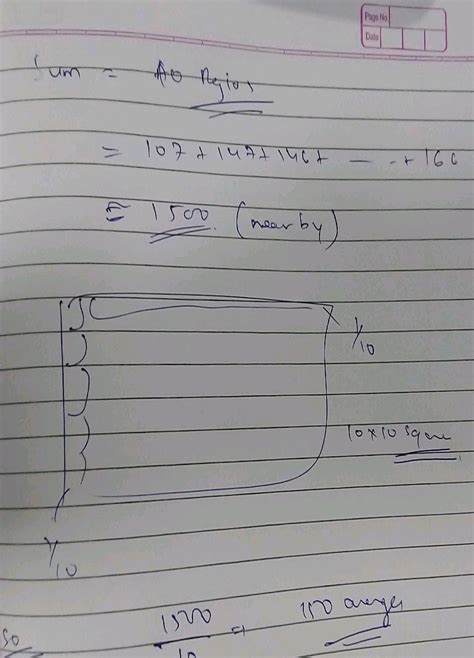 Page No
Date
Sum = Regios
= 107 + 147 + 146 + - - + 166
= 1500 (nearby)
1/10
10x10 sqare
1/10
so 1500/10 = 150